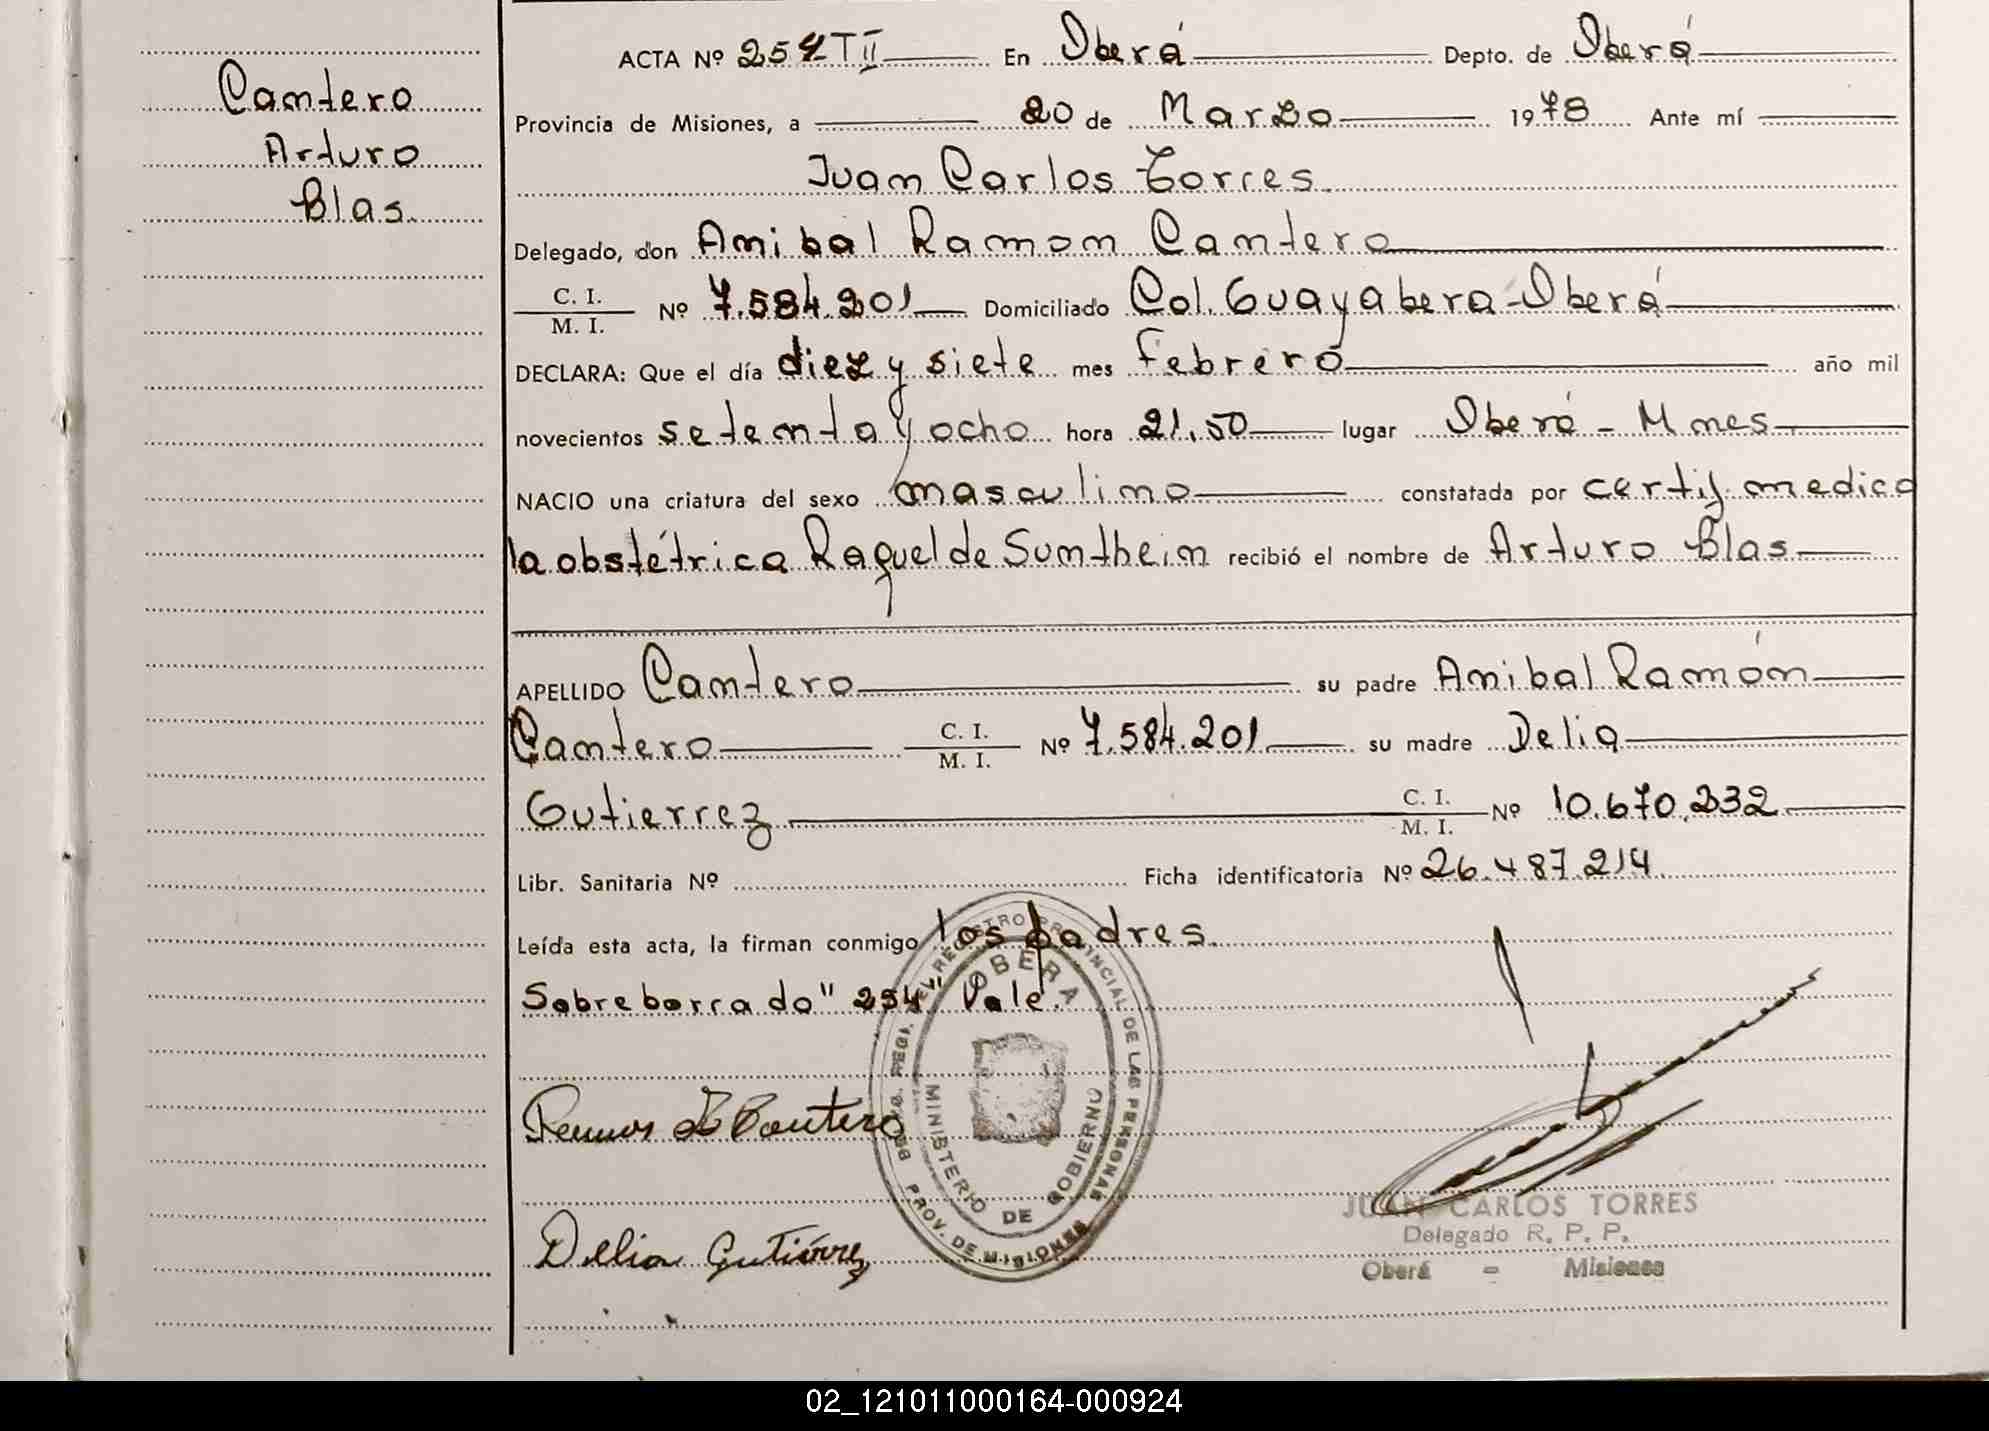 Cantero
Arturo
Blas.
ACTA Nº 254 T II En Oberá Depto. de Oberá
Provincia de Misiones, a 20 de Marzo 1978 Ante mí
Juan Carlos Torres.
Delegado, don Anibal Ramon Cantero
C. I.
M. I. Nº 7.584.201 Domiciliado Col. Guayabera-Oberá
DECLARA: Que el día diez y siete mes febrero año mil
novecientos setenta y ocho hora 21,50 lugar Oberá - Mnes
NACIO una criatura del sexo masculino constatada por certif. medico
la obstétrica Raquel de Suntheim recibió el nombre de Arturo Blas
APELLIDO Cantero su padre Anibal Ramón
Cantero C. I. M. I. Nº 7.584.201 su madre Delia
Gutierrez C. I. M. I. Nº 10.670.232
Libr. Sanitaria Nº Ficha identificatoria Nº 26.487.214
Leída esta acta, la firman conmigo los padres.
Sobreborrado "254" Vale.
Cantero
Delia Gutiérrez
REGISTRO PROVINCIAL DE LAS PERSONAS
PROV. DE MISIONES
OBERA
MINISTERIO DE GOBIERNO
JUAN CARLOS TORRES
Delegado R. P. P.
Oberá - Misiones
02_121011000164-000924